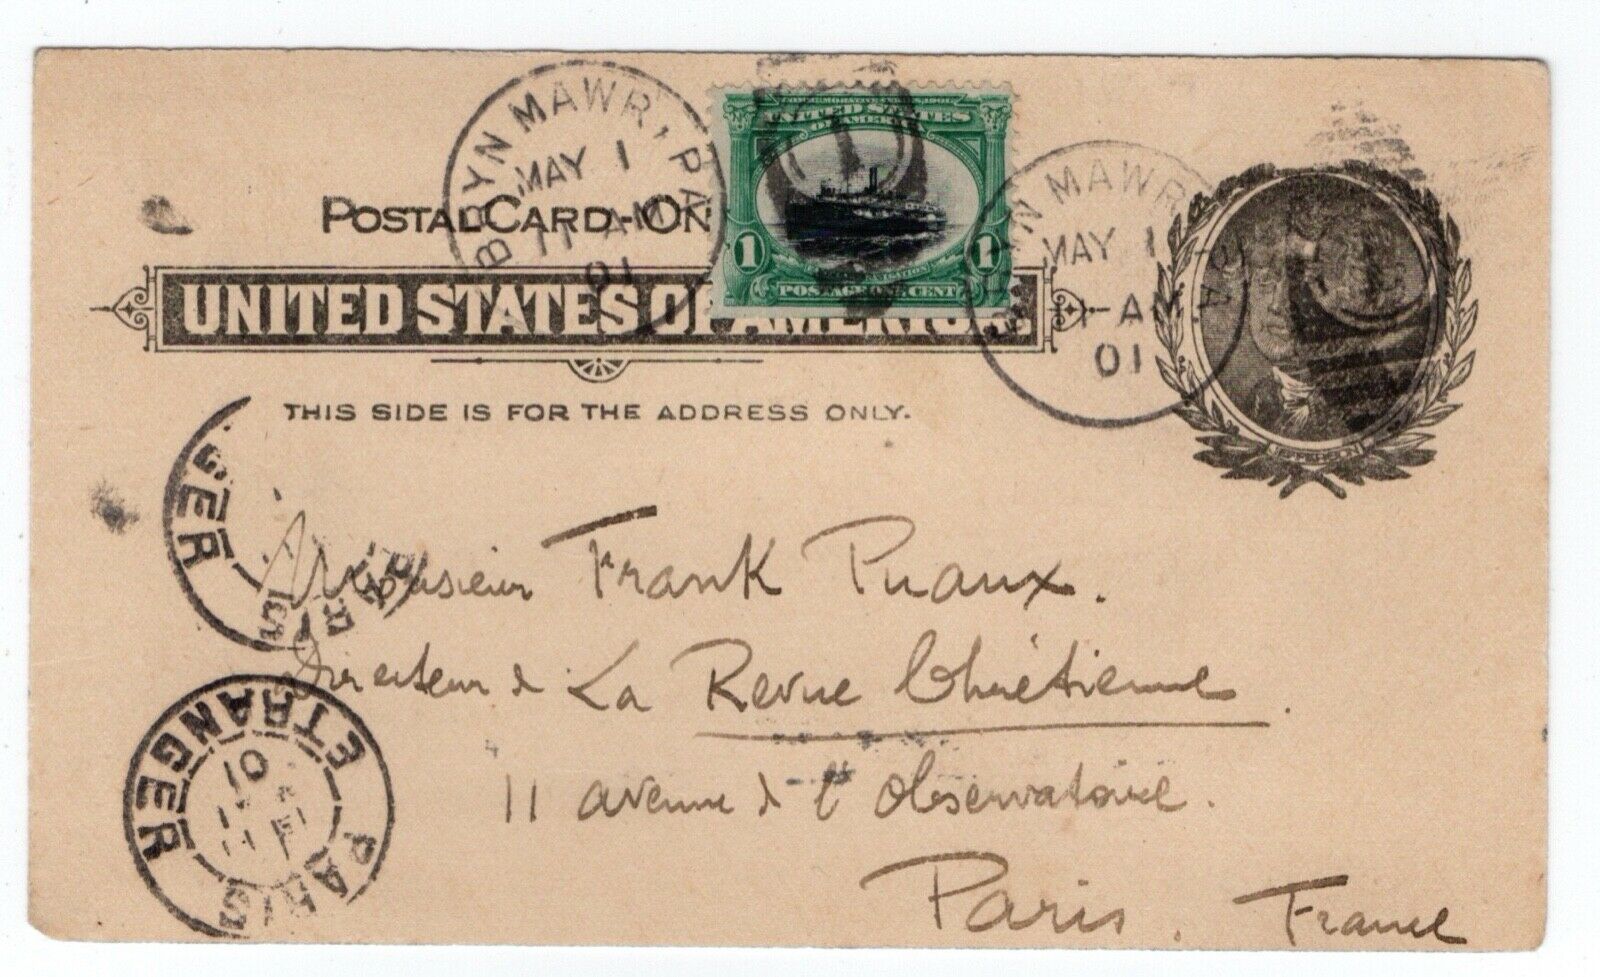 BRYN MAWR, PA.
MAY 1
11 AM
01
COMMEMORATIVE SERIES, 1901
UNITED STATES
OF AMERICA
1 1
POSTAGE ONE CENT
BRYN MAWR, PA.
MAY 1
11-AM
01
1
POSTAL CARD-ON
UNITED STATES OF AMERICA
JEFFERSON
THIS SIDE IS FOR THE ADDRESS ONLY.
GER
PAR
Monsieur Frank Puaux.
Directeur de La Revue Chrétienne.
11 avenue de l'Observatoire.
Paris. France
PARIS ETRANGER
01